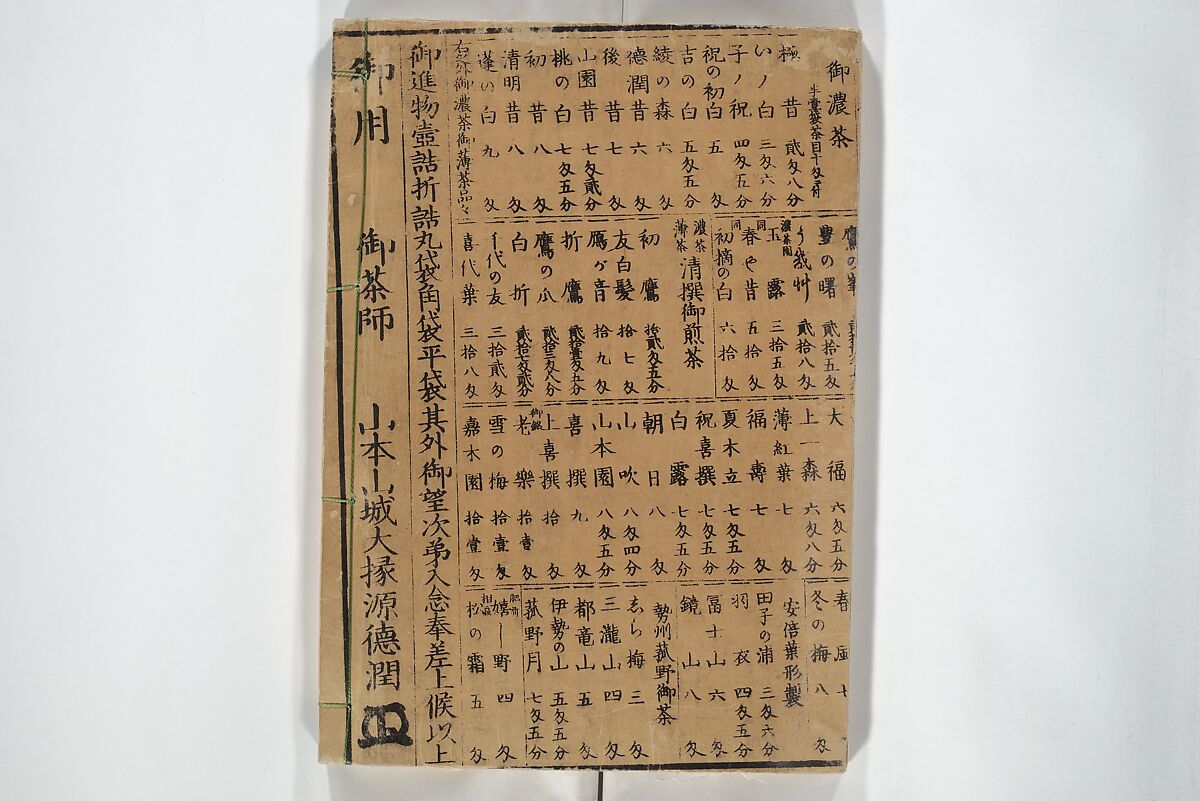 御濃茶
半壹袋茶目十匁ニ付
極昔 貳匁八分
いノ白 三匁六分
子ノ祝 四匁五分
祝の初白 五匁
吉の白 五匁五分
綾の森 六匁
德潤昔 六匁
後昔 七匁
山園昔 七匁貳分
桃の白 七匁五分
初昔 八匁
清明昔 八匁
蓬の白 九匁
右之外御濃茶御薄茶品々
鷹の峯
豊の曙 貳拾五匁
貳拾八匁
濃茶園 玉露 三拾五匁
同 春や昔 五拾匁
同 初摘の白 六拾匁
濃茶 薄茶 清撰御煎茶
初鷹 拾貳匁五分
友白髪 拾七匁
鴈が音 拾九匁
折鷹 貳拾壹匁五分
鷹の爪 貳拾三匁八分
白折 貳拾七匁貳分
千代の友 三拾貳匁
喜代葉 三拾八匁
大福 六匁五分
上一森 六匁八分
薄紅葉 七匁
福壽 七匁
夏木立 七匁五分
祝喜撰 七匁五分
白露 七匁五分
朝日 八匁
山吹 八匁四分
山本園 八匁五分
喜撰 九匁
上喜撰 拾匁
御銘 老樂 拾壹匁
雪の梅 拾壹匁
嘉木園 拾壹匁
春風 七
冬の梅 八匁
安倍葉形製
田子の浦 三匁六分
羽衣 四匁五分
冨士山 六匁
鏡山 八匁
勢州菰野御茶
志ら梅 三匁
三瀧山 四匁
都竜山 五匁
伊勢の山 五匁五分
菰野月 七匁五分
肥前 嬉し野 四匁
相良 松の霜 五匁
御進物壺詰折詰丸袋角袋平袋其外御望次弟入念奉差上候以上
御用 御茶師 山本山城大掾源德潤